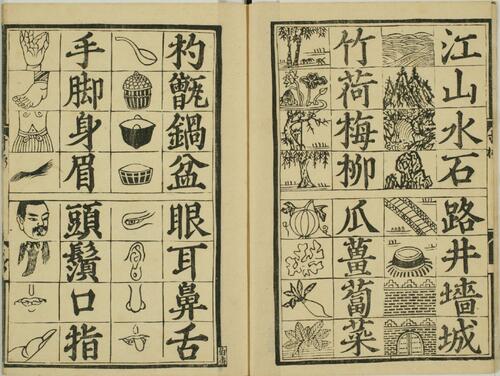 江山水石
路井墻城
竹荷梅柳
瓜薑蔔菜
杓甑鍋盆
眼耳鼻舌
手脚身眉
頭鬚口指